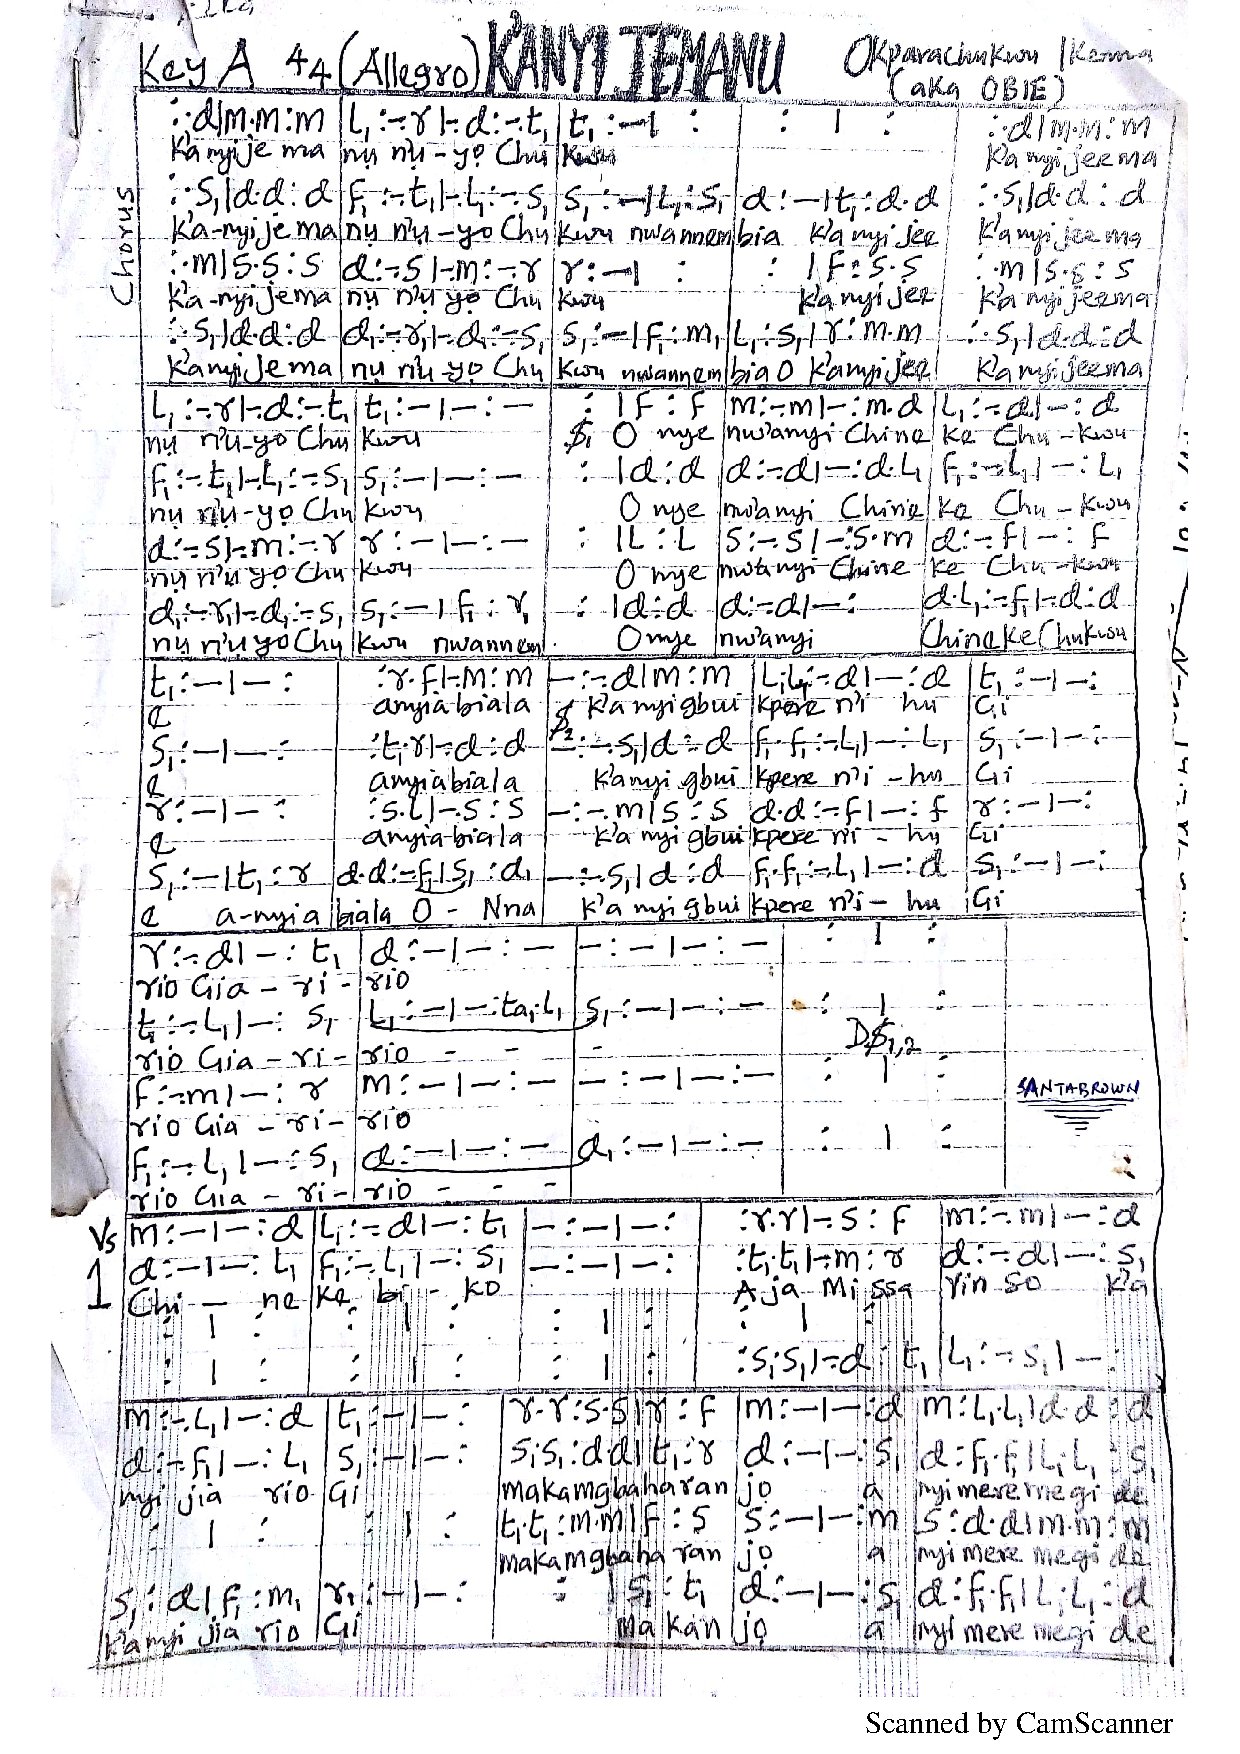 Key A 4/4 (Allegro) K'ANYI JEMANU Okparachukwu Ikenna
(aka OBIE)
Chorus
:.d|m.m:m L₁:-.r|-.d:-.t₁ t₁:-| : : | : :.d|m.m:m
k'a nyi je ma nụ n'ụ-yọ Chu kwu k'a nyi jee ma
:.s₁|d.d:d f₁:-.t₁|-.L₁:-.s₁ s₁:-|L₁:s₁ d:-|t₁:d.d :.s₁|d.d:d
k'a-nyi je ma nụ n'ụ-yọ Chu kwu nwannem bia k'a nyi jee k'a nyi jeema
:.m|s.s:s d:-.s|-.m:-.r r:-| : : |f:s.s :.m|s.s:s
k'a-nyi jema nụ n'ụ yọ Chu kwu k'a nyi jee k'a nyi jeema
:.s₁|d.d:d d₁:-.r₁|-.d₁:-.s₁ s₁:-|f₁:m₁ L₁:s₁|r:m.m :.s₁|d.d:d
k'anyi jema nụ n'ụ-yọ Chu kwu nwannem bia O k'anyi jee k'a nyi jeema
L₁:-.r|-.d:-.t₁ t₁:-|-:- : |f:f m:-.m|-:m.d L₁:-.d|-:d
nụ n'ụ-yo Chu kwu $₁ O nye nw'anyi Chine ke Chu-kwu
f₁:-.t₁|-.L₁:-.s₁ s₁:-|-:- : |d:d d:-.d|-:d.L₁ f₁:-.L₁|-:L₁
nụ n'ụ-yọ Chu kwu O nye nw'anyi Chine ke Chu-kwu
d:-.s|-.m:-.r r:-|-:- : |L:L s:-.s|-:s.m d:-.f|-:f
nụ n'ụ yo Chu kwu O nye nw'anyi Chine ke Chu-kwu
d₁:-.r₁|-.d₁:-.s₁ s₁:-|f₁:r₁ : |d:d d:-.d|-: d.L₁:-.f₁|-.d:d
nụ n'ụ yo Chu kwu nwannem O nye nw'anyi Chineke Chukwu
t₁:-|-: :r.f|-.m:m -:-.d|m:m L₁.L₁:-.d|-:d t₁:-|-:
e anyiabiala $₂ k'a nyi gbui kpere n'i hu Gi
s₁:-|-: :t₁.r|-.d:d -:-.s₁|d:d f₁.f₁:-.L₁|-:L₁ s₁:-|-:
e anyiabiala k'anyi gbui kpere n'i-hu Gi
r:-|-: :s.L|-.s:s -:-.m|s:s d.d:-.f|-:f r:-|-:
e anyiabiala k'a nyi gbui kpere n'i-hu Gi
s₁:-|t₁:r d.d:-.f₁|s₁:d₁ -:-.s₁|d:d f₁.f₁:-.L₁|-:d s₁:-|-:
e a-nyia biala O-Nna k'a nyi gbui kpere n'i-hu Gi
r:-.d|-:t₁ d:-|-:- -:-|-:- : | :
rio Gia-ri-rio
t₁:-.L₁|-:s₁ L₁:-|-:ta₁.L₁ s₁:-|-:- : | :
rio Gia-ri-rio - - - D$₁,₂
f:-.m|-:r m:-|-:- -:-|-:- : | : SANTABROWN
rio Gia-ri-rio
f₁:-.L₁|-:s₁ d:-|-:- d₁:-|-:- : | :
rio Gia-ri-rio - - -
Vs 1
m:-|-:d L₁:-.d|-:t₁ -:-|-: :r.r|-.s:f m:-.m|-:d
d:-|-:t₁ f₁:-.L₁|-:s₁ -:-|-: :t₁.t₁|-.m:r d:-.d|-:s₁
Chi-ne ke bi-ko A ja Mi ssa rin so k'a
: | : : | : : | : : | :
: | : : | : : | : :s₁.s₁|-.d:t₁ L₁:-.s₁|-:
m:-.L₁|-:d t₁:-|-: r.r:s.s|r:f m:-|-:d m:L₁.L₁|d.d:d
d:-.f₁|-:L₁ s₁:-|-: s₁.s₁:d.d|t₁:r d:-|-:s₁ d:f₁.f₁|L₁.L₁:s₁
nyi jia rio Gi makamgbaharan jọ a nyi mere megi de
: | : : | : t₁.t₁:m.m|f:s s:-|-:m s:d.d|m.m:m
makamgbaharan jọ a nyi mere megi de
s₁:d|f₁:m₁ r₁:-|-: : |s₁:t₁ d:-|-:s₁ d:f₁.f₁|L₁.L₁:d
k'anyi jia rio Gi ma kan jọ a nyi mere megi de
Scanned by CamScanner